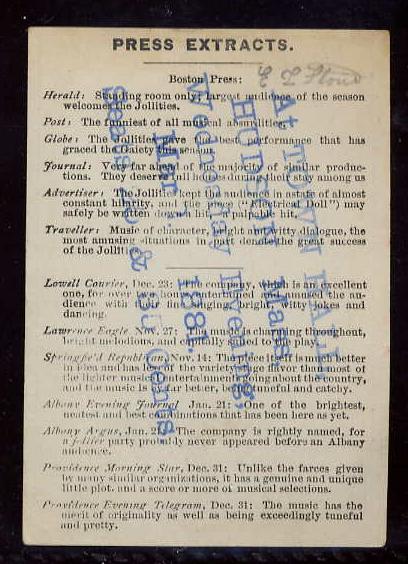 PRESS EXTRACTS.
Boston Press:
Herald: Standing room only; largest audience of the season
welcomes the Jollities.
Post: The funniest of all musical absurdities.
Globe: The Jollities gave the best performance that has
graced the Gaiety this season.
Journal: Very far ahead of the majority of similar produc-
tions. They deserve all houses during their stay among us
Advertiser: The Jollities kept the audience in a state of almost
constant hilarity, and the piece ("Electrical Doll") may
safely be written down a hit, a palpable hit.
Traveller: Music of character, bright and witty dialogue, the
most amusing situations in part denote the great success
of the Jollities
Lowell Courier, Dec. 23: The company, which is an excellent
one, for over two hours entertained and amused the au-
dience with their fine singing, bright, witty jokes and
dancing.
Lawrence Eagle, Nov. 27: The music is charming throughout,
bright melodious, and cap itally suited to the play.
Springfield Republican, Nov. 14: The piece itself is much better
in idea and has less of the variety stage flavor than most of
the lighter musical entertainments going about the country,
and the music is by far better, being tuneful and catchy.
Albany Evening Journal Jan. 21: One of the brightest,
neatest and best combinations that has been here as yet.
Albany Argus, Jan. 21: The company is rightly named, for
a jollier party probably never appeared before an Albany
audience.
Providence Morning Star, Dec. 31: Unlike the farces given
by many similar organizations, it has a genuine and unique
little plot, and a score or more of musical selections.
Providence Evening Telegram, Dec. 31: The music has the
merit of originality as well as being exceedingly tuneful
and pretty.
At TOWN HALL,
HUDSON, Mass.
Wednesday Evening,
1881
Seats & Cents.